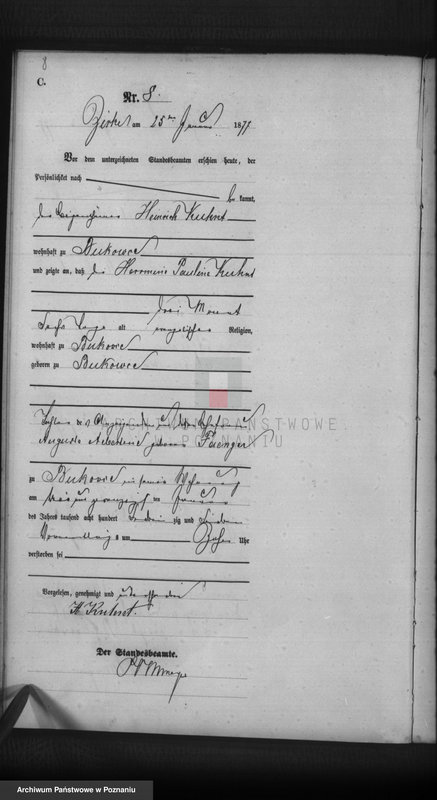 8
C.
Nr. 8.
Zirke am 25ten Januar 1877
Vor dem unterzeichneten Standesbeamten erschien heute, der
Persönlichkeit nach
be kannt,
der Eigenthümer Heinrich Kuhnt
wohnhaft zu Bukowce
und zeigte an, daß die Hermine Pauline Kuhnt
drei Monat
sechs Tage alt evangelischer Religion,
wohnhaft zu Bukowce
geboren zu Bukowce
Tochter des Angezeigenden und dessen Ehefrau
Auguste geborene Faenger
ARCHIWUM PAŃSTWOWE
W POZNANIU
zu Bukowce in seiner Wohnung
am drei und zwanzigsten Januar
des Jahres tausend acht hundert siebenzig und sieben
Vormittags um Zehn Uhr
verstorben sei
Vorgelesen, genehmigt und unterschrieben
H Kuhnt.
Der Standesbeamte.
Archiwum Państwowe w Poznaniu